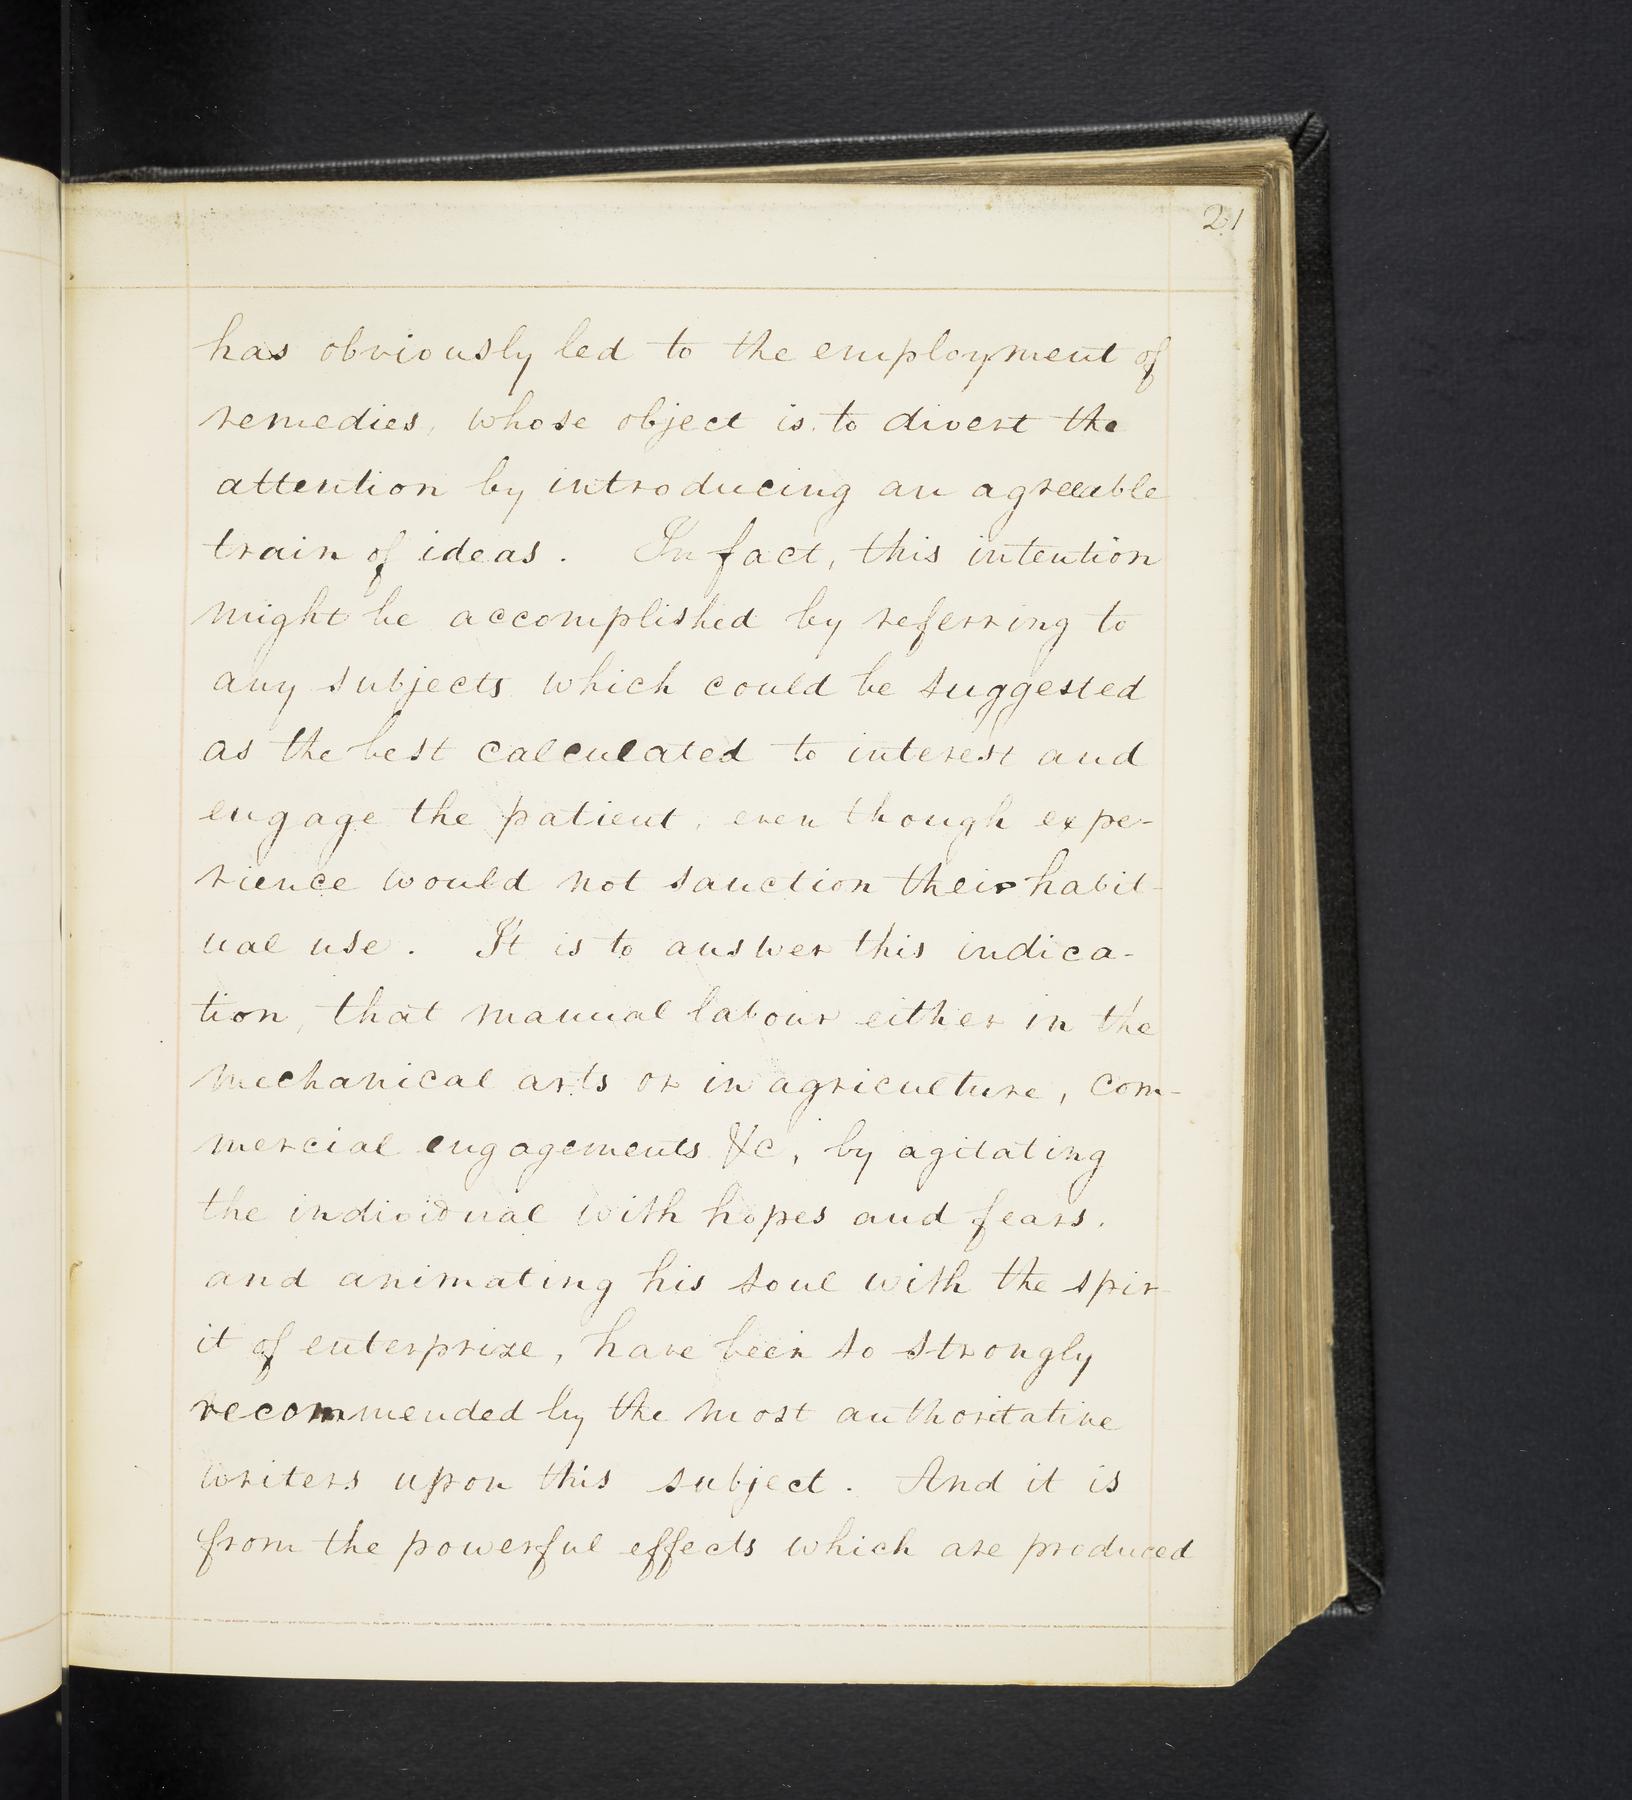 21
has obviously led to the employment of
remedies, whose object is to divert the
attention by introducing an agreeable
train of ideas. In fact, this intention
might be accomplished by referring to
any subjects which could be suggested
as the best calculated to interest and
engage the patient, even though expe-
rience would not sanction their habit-
ual use. It is to answer this indica-
tion, that manual labour either in the
mechanical arts or in agriculture, com-
mercial engagements &c, by agitating
the individual with hopes and fears.
and animating his soul with the spir-
it of enterprize, have been so strongly
recommended by the most authoritative
writers upon this subject. And it is
from the powerful effects which are produced